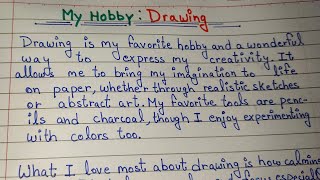 My Hobby: Drawing
Drawing is my favorite hobby and a wonderful
way to express my creativity. It
allows me to bring my imagination to life
on paper, whether through realistic sketches
or abstract art. My favorite tools are penc-
ils and charcoal, though I enjoy experimenting
with colors too.
What I love most about drawing is how calming